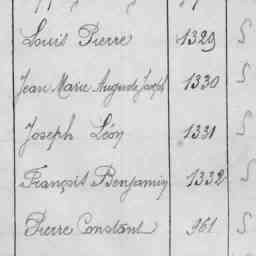 Louis Pierre 1329 S
Jean Marie Auguste Joseph 1330 S
Joseph Léon 1331 S
François Benjamin 1332 S
Pierre Constant 961 S